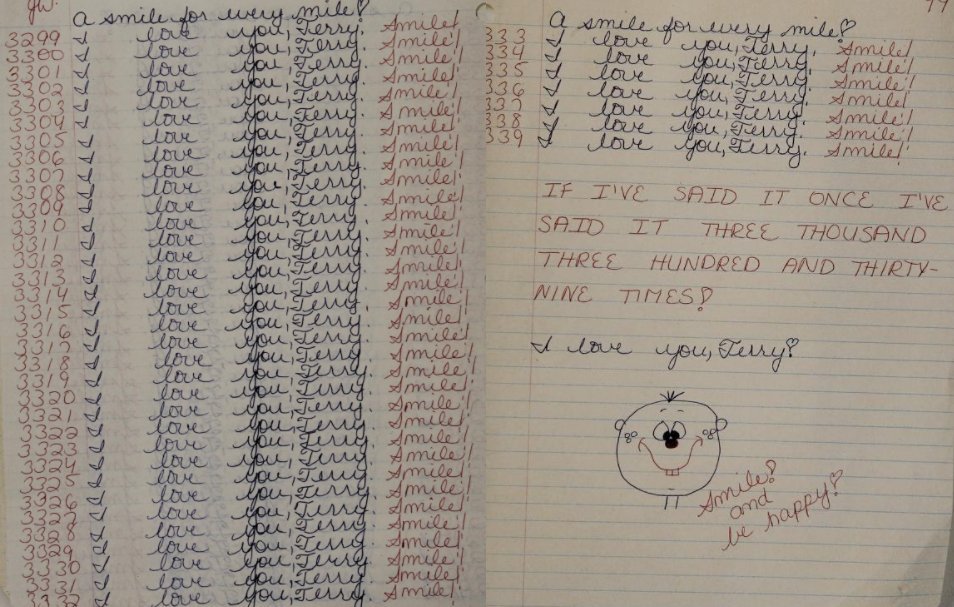 A smile for every mile!
3299 I love you, Terry. Smile!
3300 I love you, Terry. Smile!
3301 I love you, Terry. Smile!
3302 I love you, Terry. Smile!
3303 I love you, Terry. Smile!
3304 I love you, Terry. Smile!
3305 I love you, Terry. Smile!
3306 I love you, Terry. Smile!
3307 I love you, Terry. Smile!
3308 I love you, Terry. Smile!
3309 I love you, Terry. Smile!
3310 I love you, Terry. Smile!
3311 I love you, Terry. Smile!
3312 I love you, Terry. Smile!
3313 I love you, Terry. Smile!
3314 I love you, Terry. Smile!
3315 I love you, Terry. Smile!
3316 I love you, Terry. Smile!
3317 I love you, Terry. Smile!
3318 I love you, Terry. Smile!
3319 I love you, Terry. Smile!
3320 I love you, Terry. Smile!
3321 I love you, Terry. Smile!
3322 I love you, Terry. Smile!
3323 I love you, Terry. Smile!
3324 I love you, Terry. Smile!
3325 I love you, Terry. Smile!
3326 I love you, Terry. Smile!
3327 I love you, Terry. Smile!
3328 I love you, Terry. Smile!
3329 I love you, Terry. Smile!
3330 I love you, Terry. Smile!
3331 I love you, Terry. Smile!
3332 I love you, Terry. Smile!
A smile for every mile!
333 I love you, Terry. Smile!
334 I love you, Terry. Smile!
335 I love you, Terry. Smile!
336 I love you, Terry. Smile!
337 I love you, Terry. Smile!
338 I love you, Terry. Smile!
339 I love you, Terry. Smile!
IF I'VE SAID IT ONCE I'VE
SAID IT THREE THOUSAND
THREE HUNDRED AND THIRTY-
NINE TIMES!
I love you, Terry!
Smile!
and
be happy!